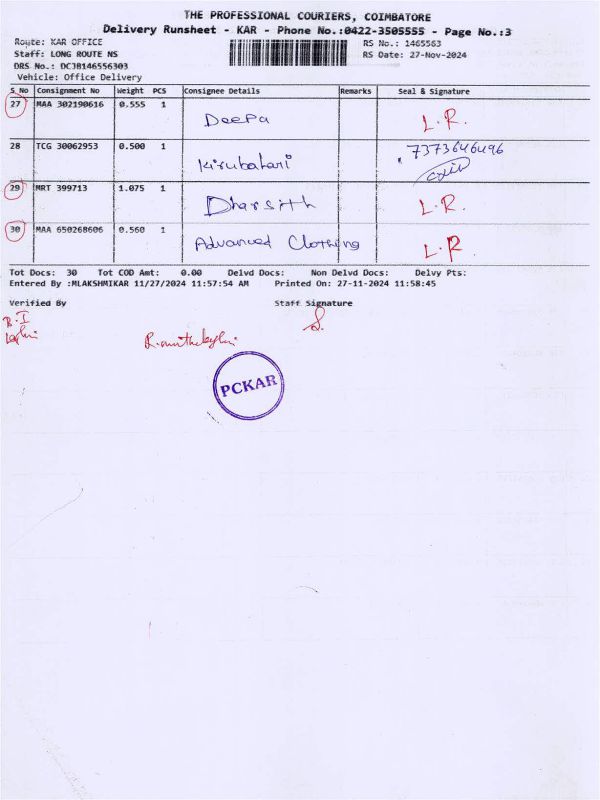 THE PROFESSIONAL COURIERS, COIMBATORE
Delivery Runsheet - KAR - Phone No.:0422-3505555 - Page No.:3
Route: KAR OFFICE RS No.: 1465563
Staff: LONG ROUTE NS RS Date: 27-Nov-2024
DRS No.: DCJB146556303
Vehicle: Office Delivery
S No Consignment No Weight PCS Consignee Details Remarks Seal & Signature
27 MAA 302190616 0.555 1 Deepa L.R.
28 TCG 30062953 0.500 1 Kirubahari 7373646496
29 MRT 399713 1.075 1 Dharsith L.R.
30 MAA 650268606 0.560 1 Advanced Clothing L.R.
Tot Docs: 30 Tot COD Amt: 0.00 Delvd Docs: Non Delvd Docs: Delvy Pts:
Entered By :MLAKSHMIKAR 11/27/2024 11:57:54 AM Printed On: 27-11-2024 11:58:45
Verified By Staff Signature
PCKAR